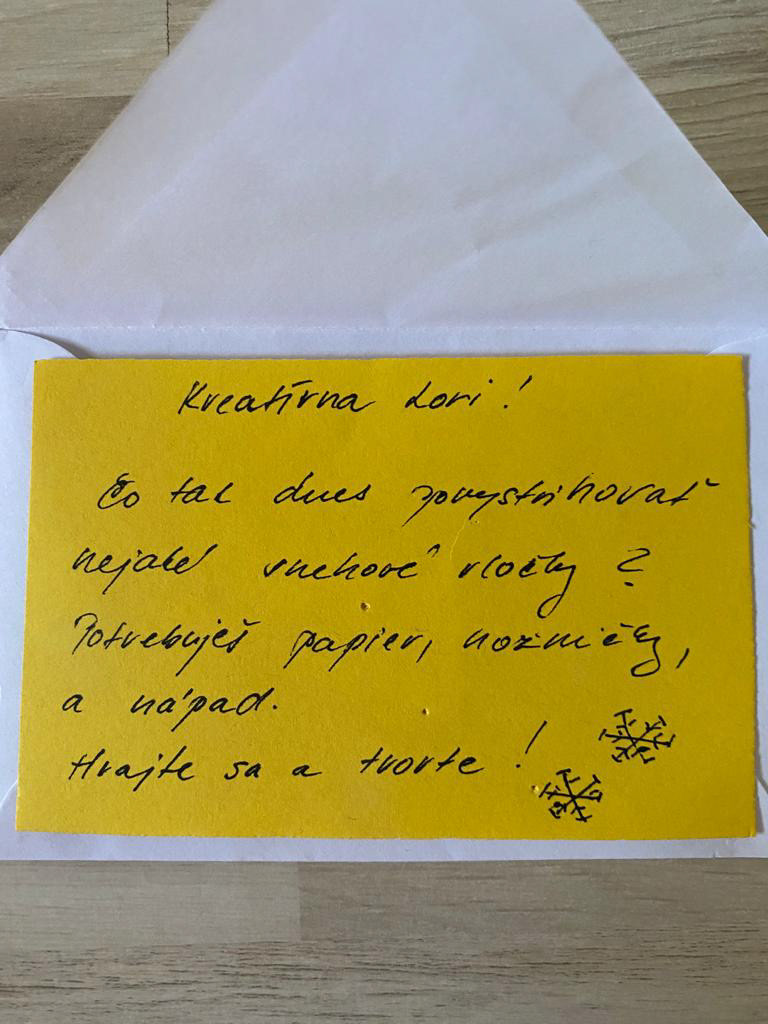 Kreatívna Lori!
Čo tak dnes povystrihovať
nejaké snehové vločky?
Potrebuješ papier, nožničky,
a nápad.
Hrajte sa a tvorte!